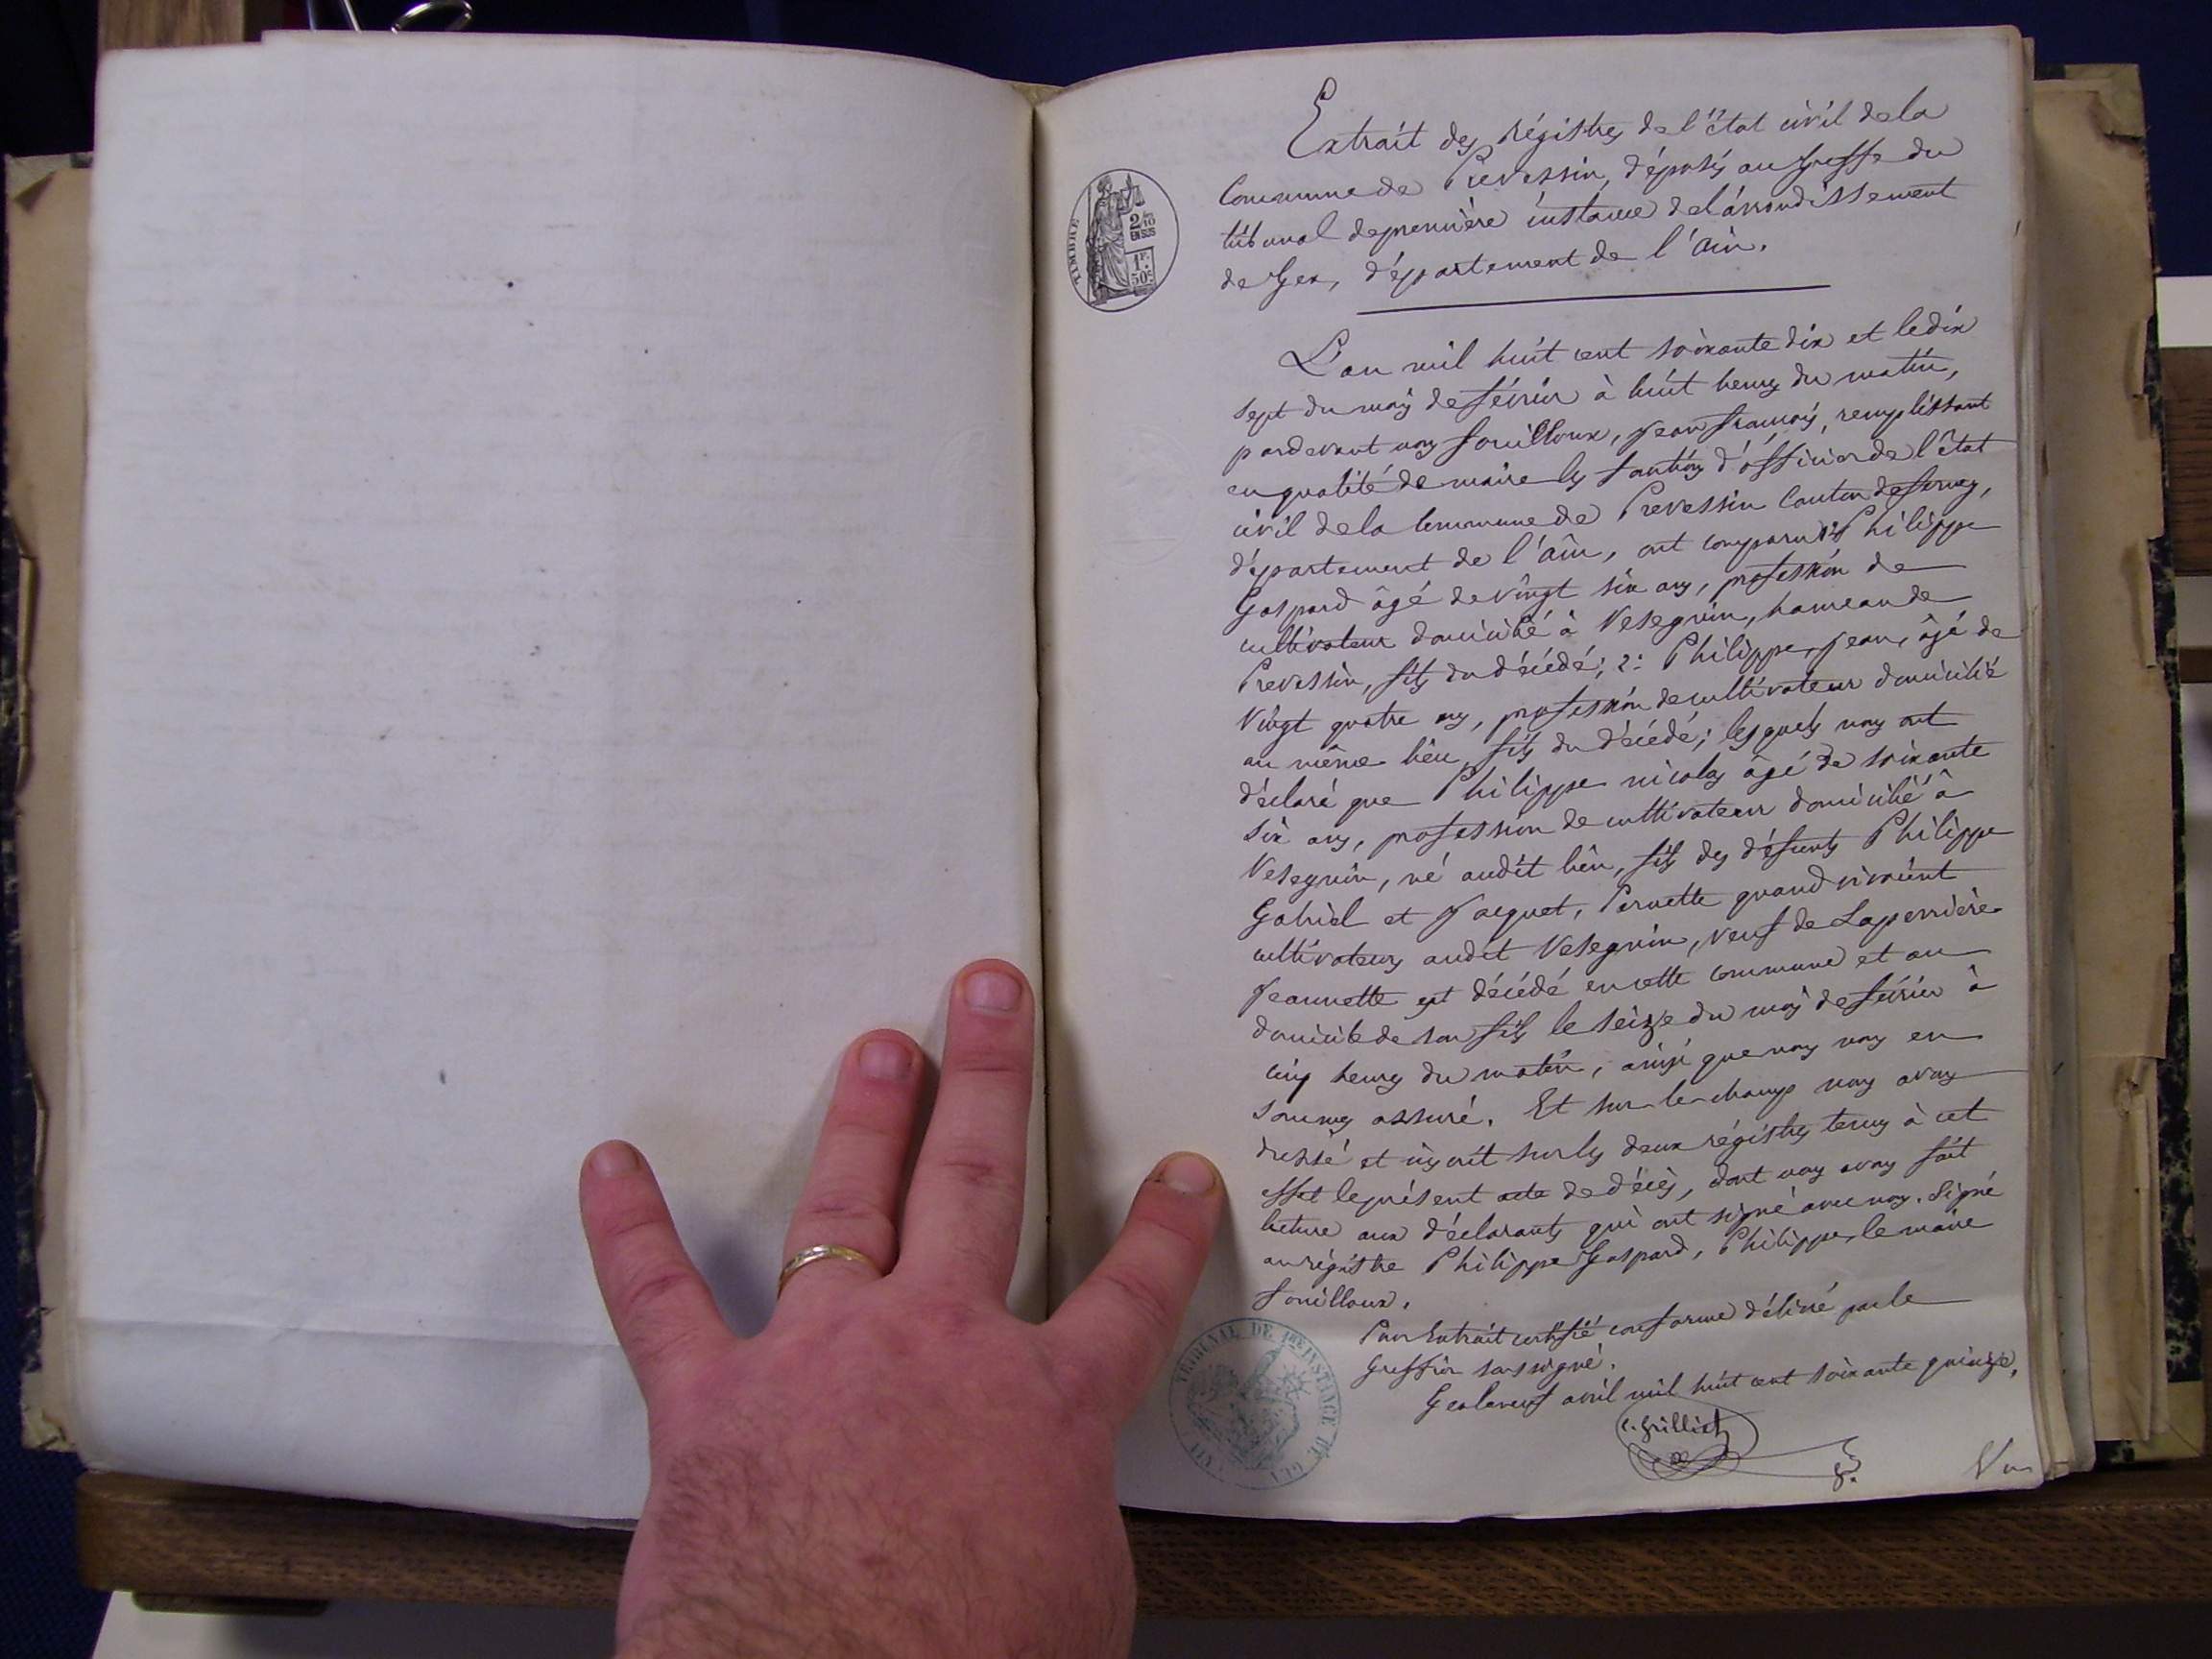 Extrait des régistres de l'état civil de la
Commune de Prevessin, déposés au Greffe du
tribunal de première instance de l'arrondissement
de Gex, département de l'Ain.
TIMBRE
2/10
EN SUS
1F.
50C.
L'an mil huit cent soixante dix et le dix
sept du mois de février à huit heures du matin,
pardevant nous Fouilloux, Jean François, remplissant
en qualité de maire les fonctions d'officier de l'état
civil de la Commune de Prevessin Canton de Ferney,
département de l'Ain, ont comparu 1° Philippe
Gaspard âgé de vingt six ans, profession de
cultivateur domicilié à Vesegnin, hameau de
Prevessin, fils du décédé; 2° Philippe, Jean, âgé de
vingt quatre ans, profession de cultivateur domicilié
au même lieu, fils du décédé; lesquels nous ont
déclaré que Philippe Nicolas âgé de soixante
six ans, profession de cultivateur domicilié à
Vesegnin, né audit lieu, fils des défunts Philippe
Gabriel et Jacquet, Pernette quand vivaient
cultivateurs audit Vesegnin, veuf de Laperrière
Jeannette est décédé en cette commune et au
domicile de son fils le seize du mois de février à
cinq heures du matin, ainsi que nous nous en
sommes assuré. Et sur-le-champ nous avons
dressé et inscrit sur les deux régistres tenus à cet
effet le présent acte de décès, dont nous avons fait
lecture aux déclarants qui ont signé avec nous. Signé
au régistre Philippe Gaspard, Philippe, le maire
Fouilloux.
Pour Extrait certifié conforme délivré par le
Greffier soussigné.
Gex le neuf avril mil huit cent soixante quinze.
TRIBUNAL DE 1ERE INSTANCE DE GEX
Vu